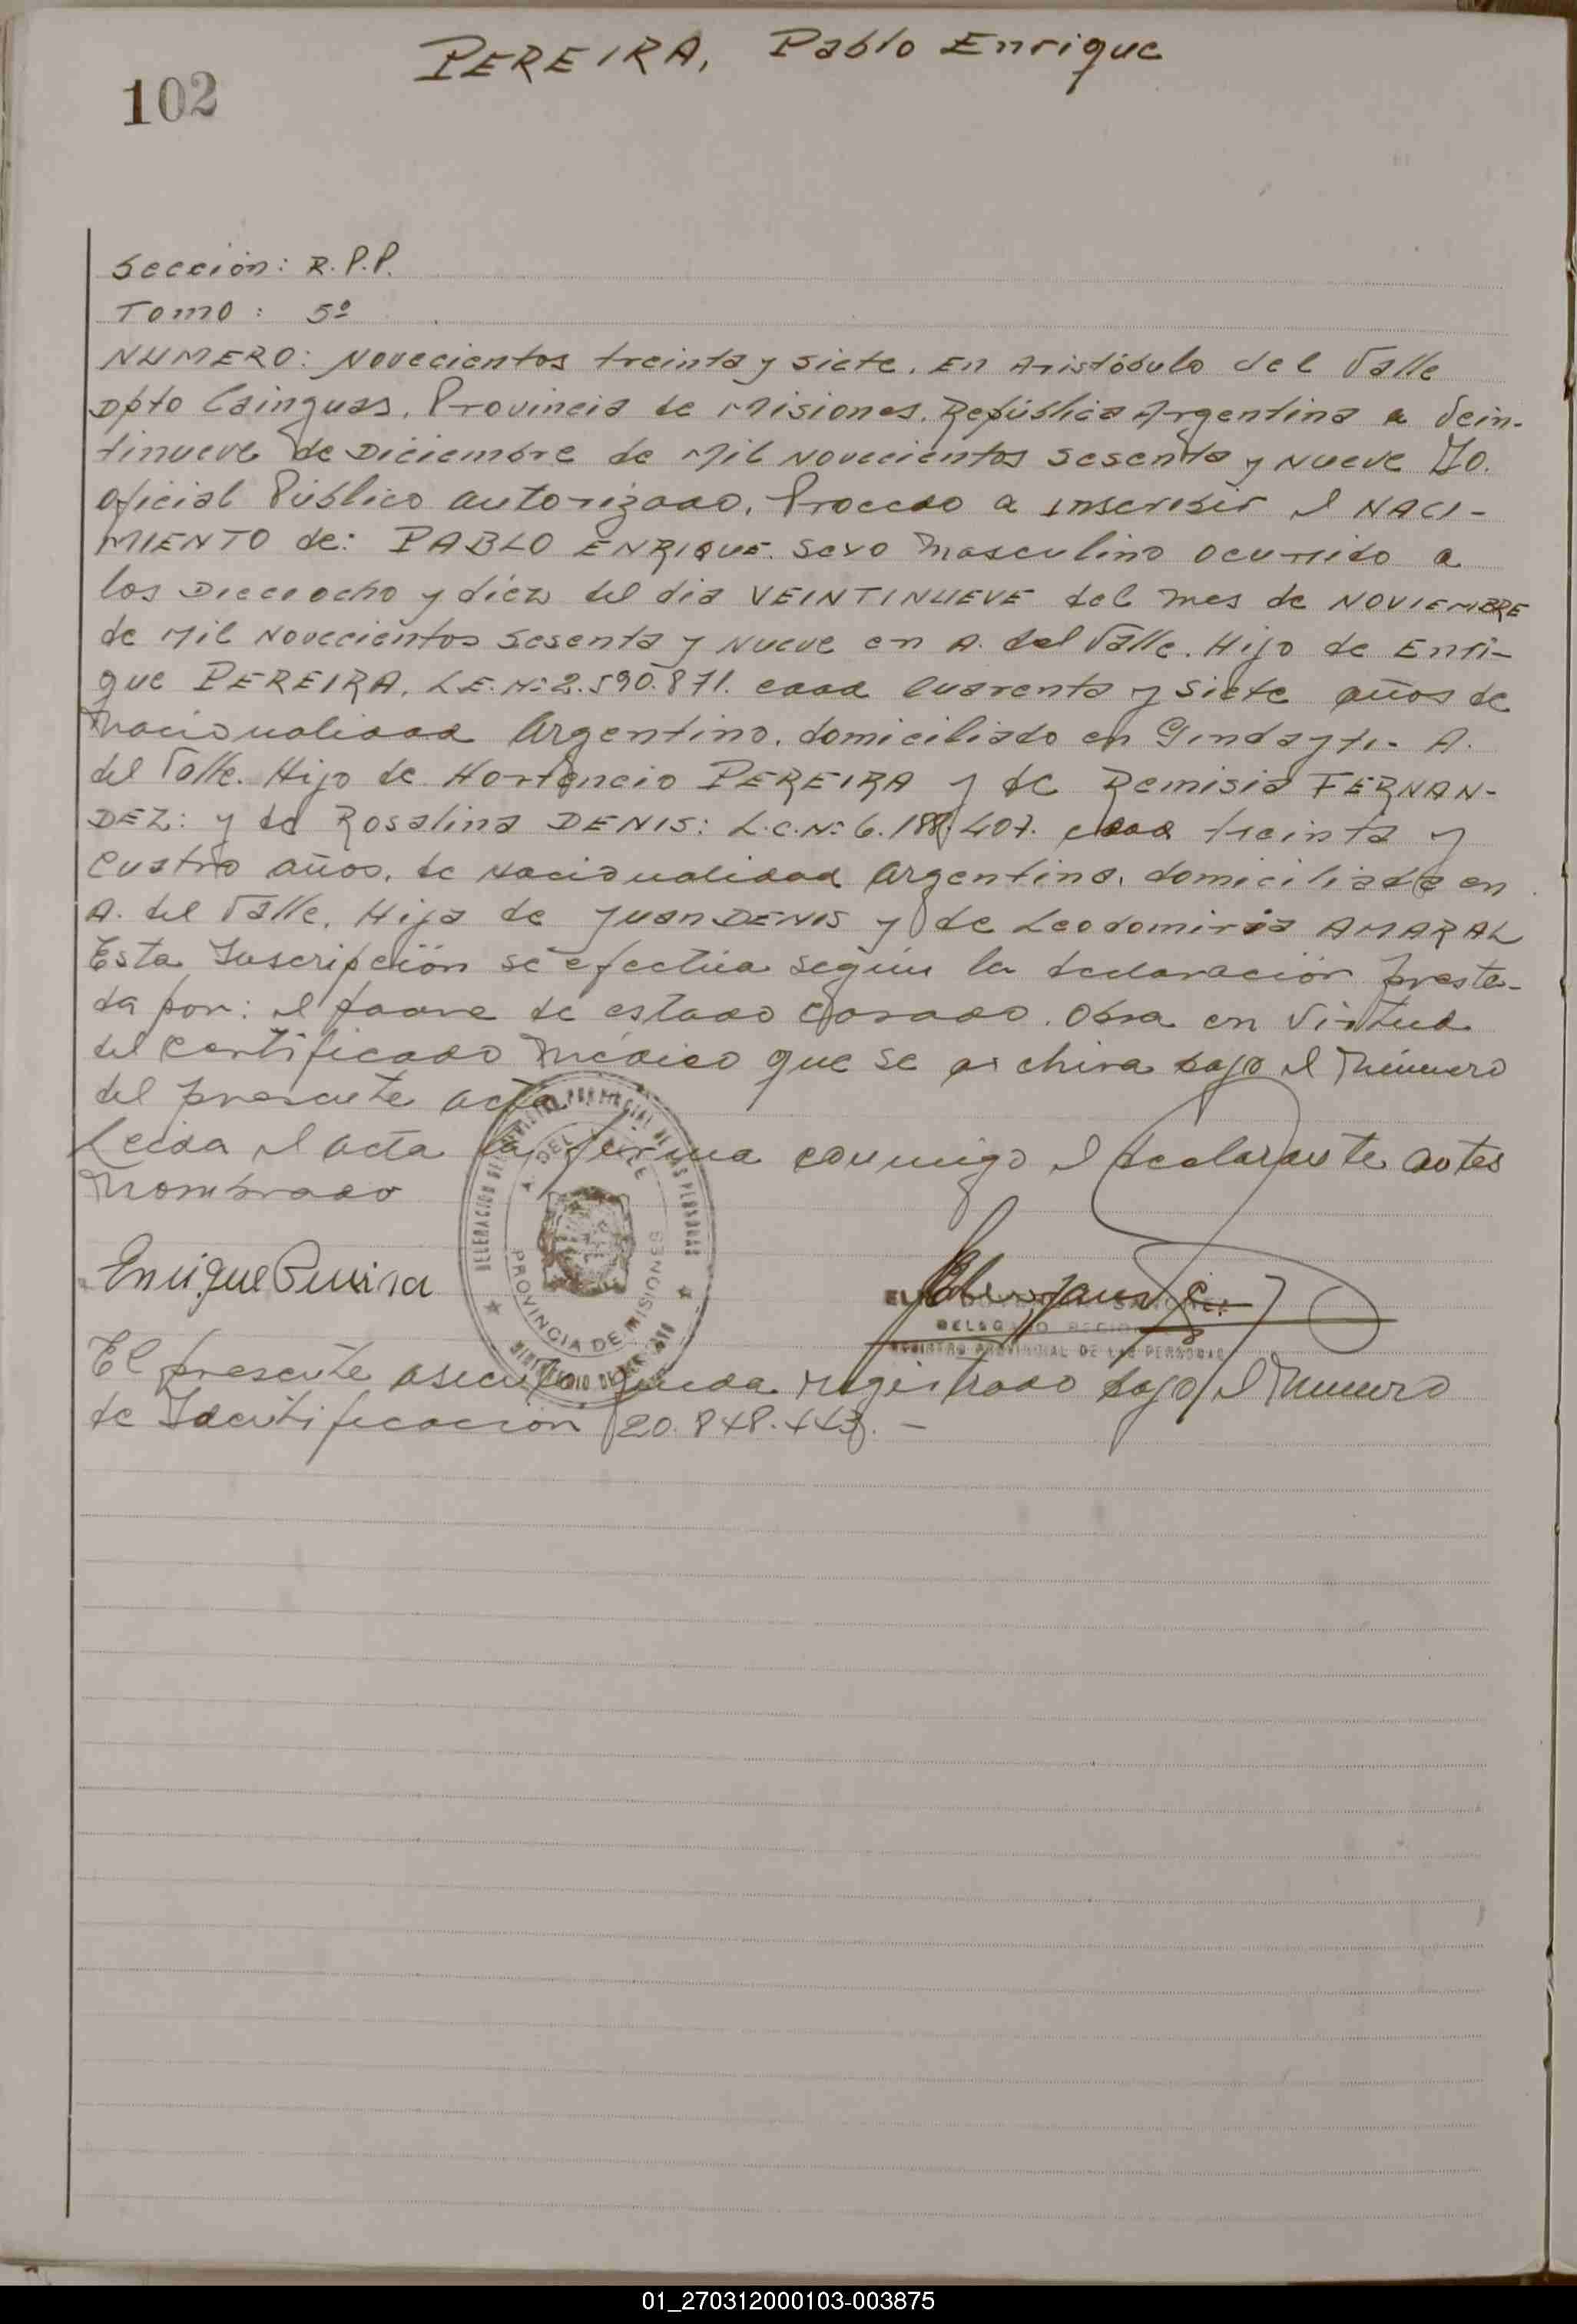 PEREIRA, Pablo Enrique
102
Sección: R.P.P.
Tomo: 5º
NUMERO: Novecientos treinta y siete. En Aristóbulo del Valle
Dpto Cainguas. Provincia de Misiones. República Argentina a Vein-
tinueve de Diciembre de Mil Novecientos sesenta y Nueve Yo.
Oficial Público autorizado. Procedo a inscribir el NACI-
MIENTO de: PABLO ENRIQUE. Sexo Masculino ocurrido a
los Dieciocho y diéz del dia VEINTINUEVE del mes de NOVIEMBRE
de Mil Novecientos Sesenta y Nueve en A. del Valle. Hijo de Enri-
que PEREIRA. L.E.Nº 2.590.871. edad Cuarenta y Siete años de
Nacionalidad Argentino. domiciliado en A.
del Valle. Hijo de Hortencio PEREIRA y de Remisia FERNAN-
DEZ: y de Rosalina DENIS: L.C.Nº 6.188.407. edad treinta y
Cuatro años. de Nacionalidad Argentina. domiciliada en
A. del Valle. Hija de Juan DENIS y de Leodomiria AMARAL
Esta Inscripción se efectúa según la declaración presta-
da por: el padre de estado Casado. Obra en Virtud
del Certificado Médico que se archiva bajo el Número
del presente acta
Leida el acta la firma conmigo el declarante antes
Nombrado
DELEGACION DEL REGISTRO PROVINCIAL DE LAS PERSONAS
A. DEL VALLE
PROVINCIA DE MISIONES
MINISTERIO DE
Enrique Pereira
SANCHEZ
DELEGADO
REGISTRO PROVINCIAL DE LAS PERSONAS
El presente asiento queda registrado bajo el Número
de Identificación 20.848.443. -
01_270312000103-003875